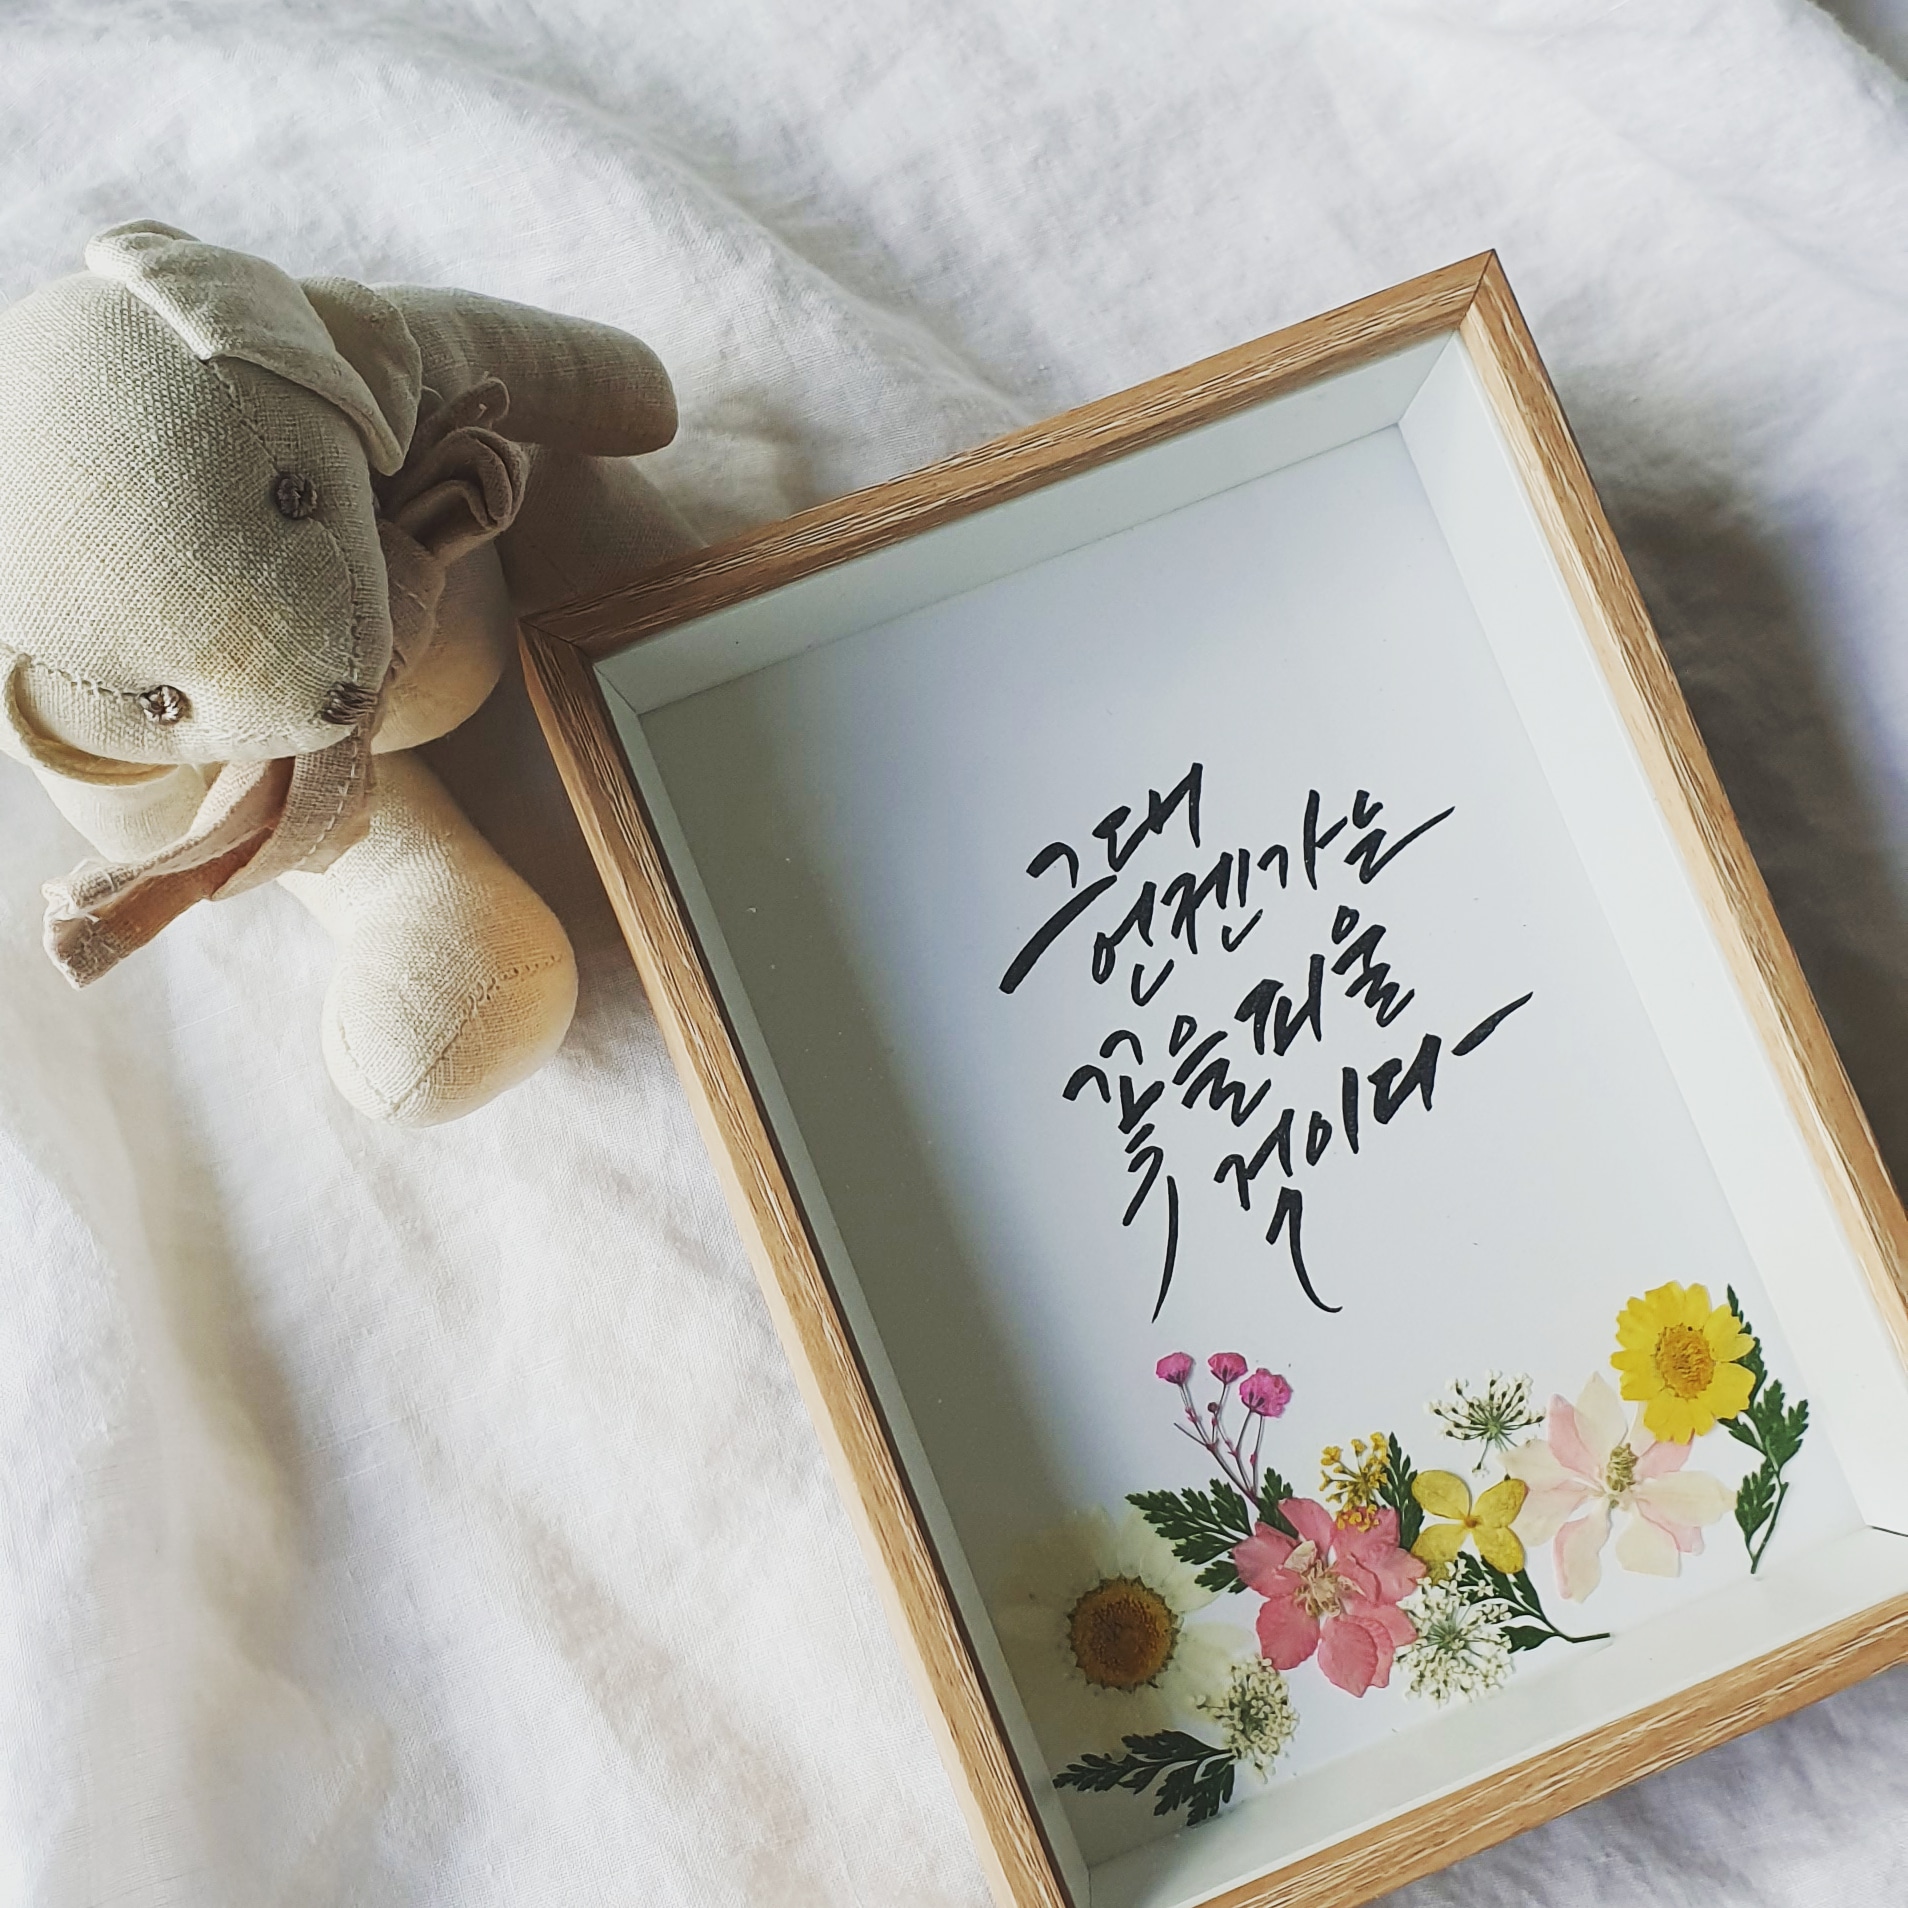 그대
언젠가는
꽃을피울
것이다